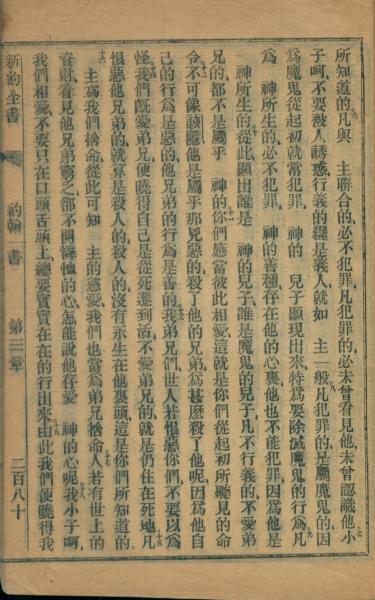 所知道的凡與　主聯合的必不犯罪凡犯罪的必未曾看見他未曾認識他小
子呵不要被人誘惑行義的纔是義人就如　主一般凡犯罪的是屬魔鬼的因
爲魔鬼從起初就常犯罪　神的　兒子顯現出來特爲要除滅魔鬼的行爲凡
爲　神所生的必不犯罪　神的善種存在他的心裏他也不能犯罪因爲他是
　神所生的從此顯出誰是　神的兒子誰是魔鬼的兒子凡不行義的不愛弟
兄的都不是屬乎　神的你們應當彼此相愛這就是你們從起初所聽見的命
令不可像該隱他是屬乎那兇惡的殺了他的兄弟爲甚麽殺了他呢因爲他自
己的行爲是惡的他兄弟的行爲是善的我弟兄們世人若恨惡你們不要以爲
怪我們旣愛弟兄便曉得自己是從死裏到活不愛弟兄的就是仍住在死地凡
恨惡他兄弟的就算是殺人的殺人的沒有永生在他裏頭這是你們所知道的
　主爲我們捨命從此可知　主的慈愛我們也當爲弟兄捨命人若有世上的
資財看見他兄弟窮乏卻不開憐恤的心怎能說他存愛　神的心呢我小子呵
我們相愛不要只在口頭舌頭上總要實實在在的行出來由此我們便曉得我
新約全書　約翰　書　第三章　二百八十